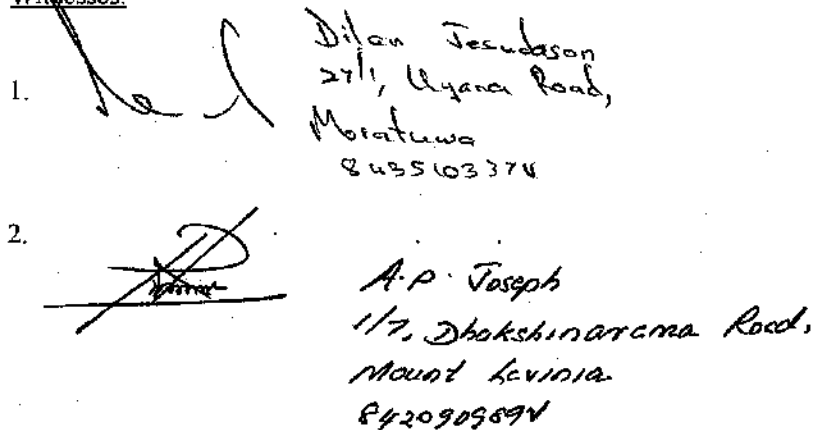 Witnesses:
1.
Dilan Jesudason
27/1, Uyana Road,
Moratuwa
843510337V
2.
A.P. Joseph
1/7, Dhakshinarama Road,
Mount Lavinia
842090989V